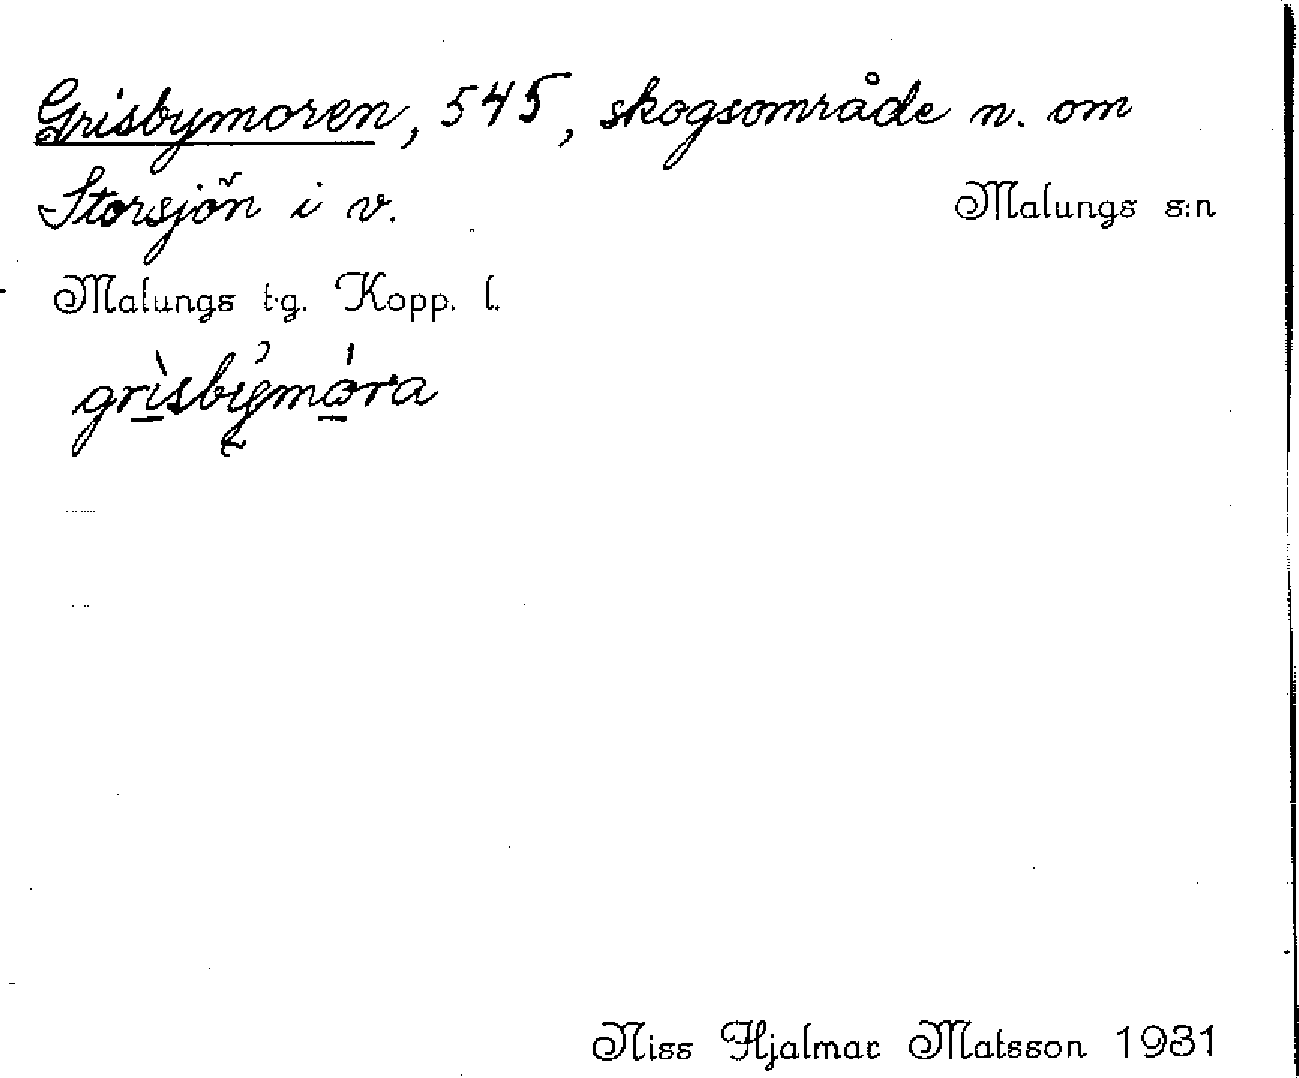 Grisbymoren, 545, skogsområde n. om
Storsjön i v. Malungs s:n
Malungs t.g. Kopp. l.
grisbymora
Niss Hjalmar Matsson 1931